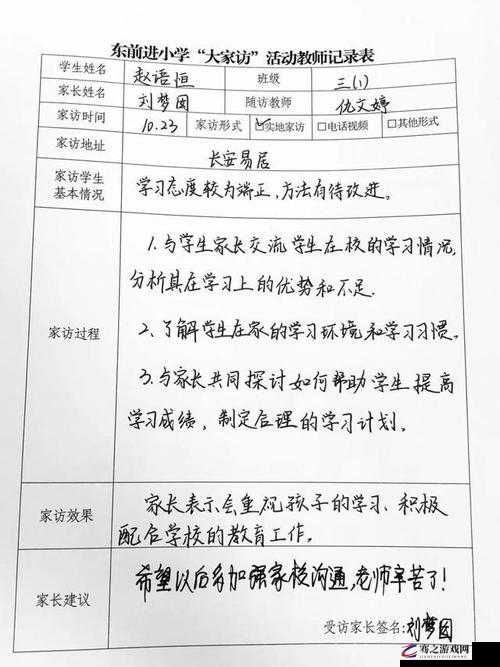 东前进小学“大家访”活动教师记录表
学生姓名 赵语恒 班级 三(1)
家长姓名 刘梦园 随访教师 仇文婷
家访时间 10.23 家访形式 ☑实地家访 □电话视频 □其他形式
家访地址 长安易居
家访学生
基本情况 学习态度较为端正,方法有待改进。
家访过程
1.与学生家长交流学生在校的学习情况,
分析其在学习上的优势和不足.
2、了解学生在家的学习环境和学习习惯。
3.与家长共同探讨如何帮助学生提高
学习成绩,制定合理的学习计划。
家访效果
家长表示会重视孩子的学习、积极
配合学校的教育工作。
家长建议
希望以后多加强家校沟通,老师辛苦了!
受访家长签名:刘梦园
骞之游戏网